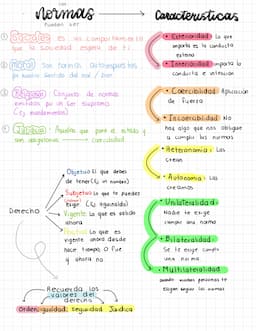 Las
normas
pueden ser
Características
① Sociales es un comportamiento
que la sociedad espera de ti.
② Moral Son normas autoimpuestas,
tu propio sentido del mal / bien
③ Religiosa Conjunto de normas
emitidas por un ser supremo
(Ej. mandamientos)
④ Jurídica Aquellas que pone el estado y
son obligatorias coercibilidad
• Exterioridad Lo que
importa es la conducta
externa
• Interioridad importa la
conducta e intención
• Coercibilidad Aplicación
de fuerza
• Incoercibilidad No
hay algo que nos obligue
a cumplir las normas
• Heteronomía Las
crean
• Autonomía Las
creamos
• Unilateralidad
Nadie te exige
cumplir una norma
• Bilateralidad
Se te exige cumplir
una norma
• Multilateralidad
cuando muchas personas te
exigen seguir las normas
Derecho
Objetivo El que
de tener (Ej un número)
Subjetivo Lo que te puedes
exigir (Ej. aguinaldo)
Vigente Lo que es válido
ahora
Positivo Lo que es
vigente ahora desde
hace tiempo o fue
y ahora no
Recuerda los
valores del
derecho
Orden, igualdad, seguridad Jurídica